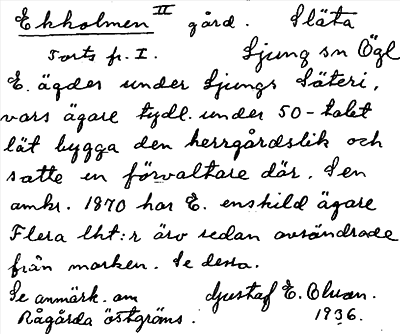 Ekholmen II gård. Släta
Forts fr. I. Ljung sn Ögl
E. ägdes under Ljungs Säteri,
vars ägare tydl. under 50-talet
lät bygga den herrgårdslik och
satte en förvaltare där. Sen
omkr. 1870 har E. enskild ägare
Flera lht:r äro sedan avsöndrade
från marken. Se dessa.
Se anmärk. om Gustaf E. Olson.
Rågårda östgräns. 1936.